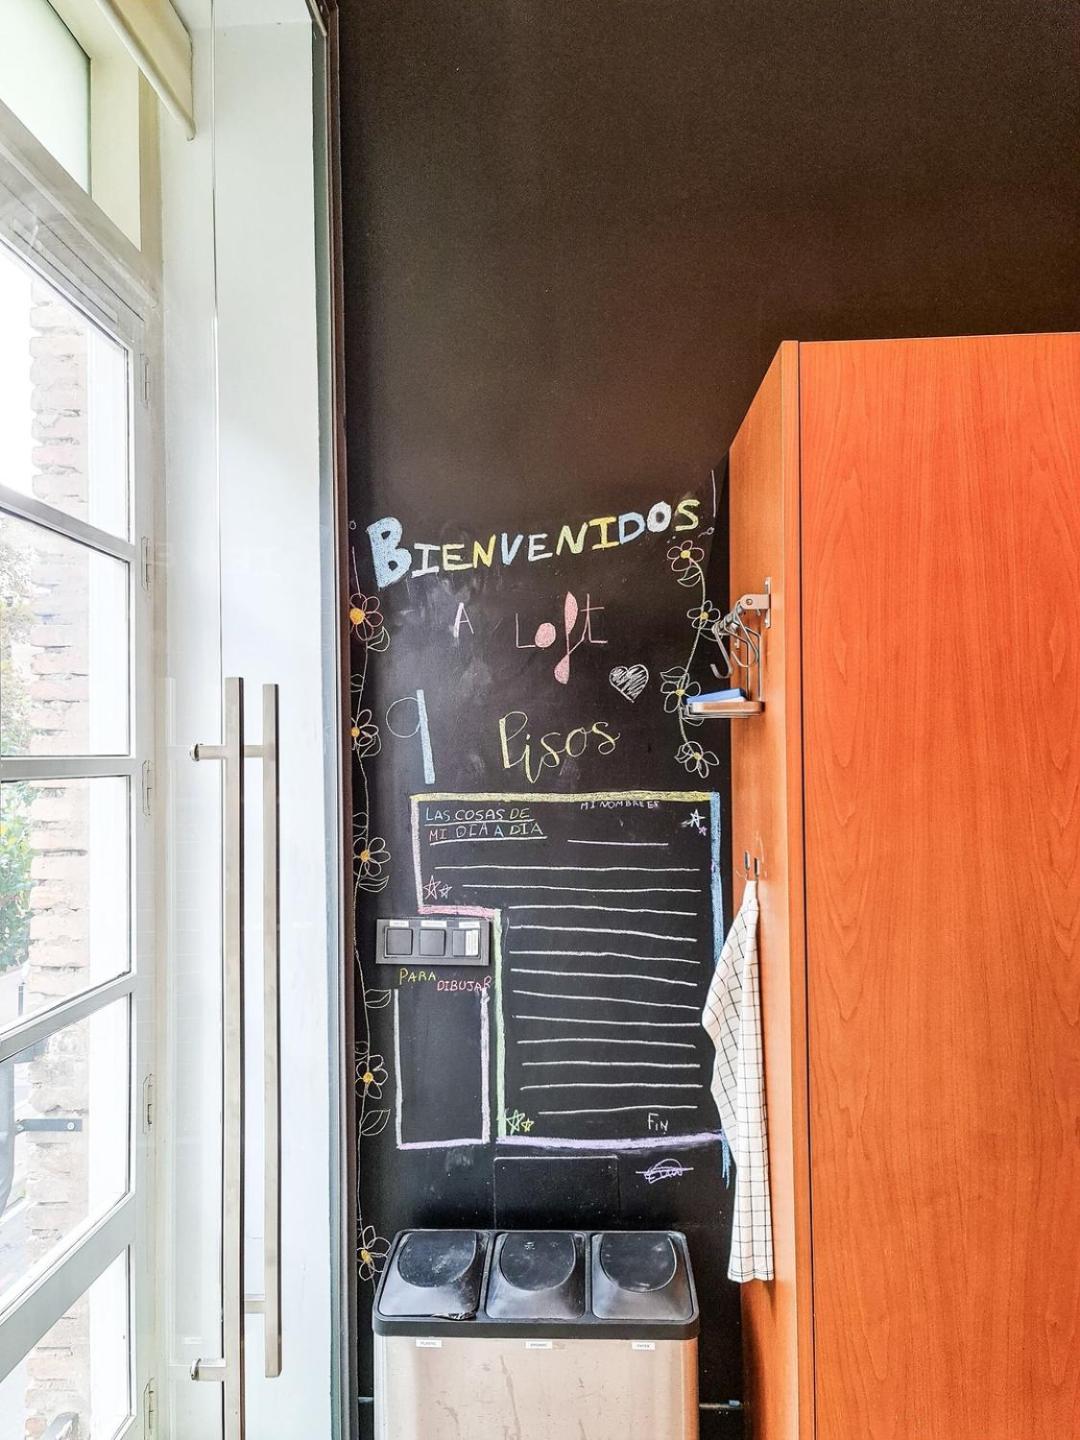 BIENVENIDOS
A Loft
9 Pisos
LAS COSAS DE
MI DIA A DIA
MI NOMBRE ES
PARA
DIBUJAR
FIN